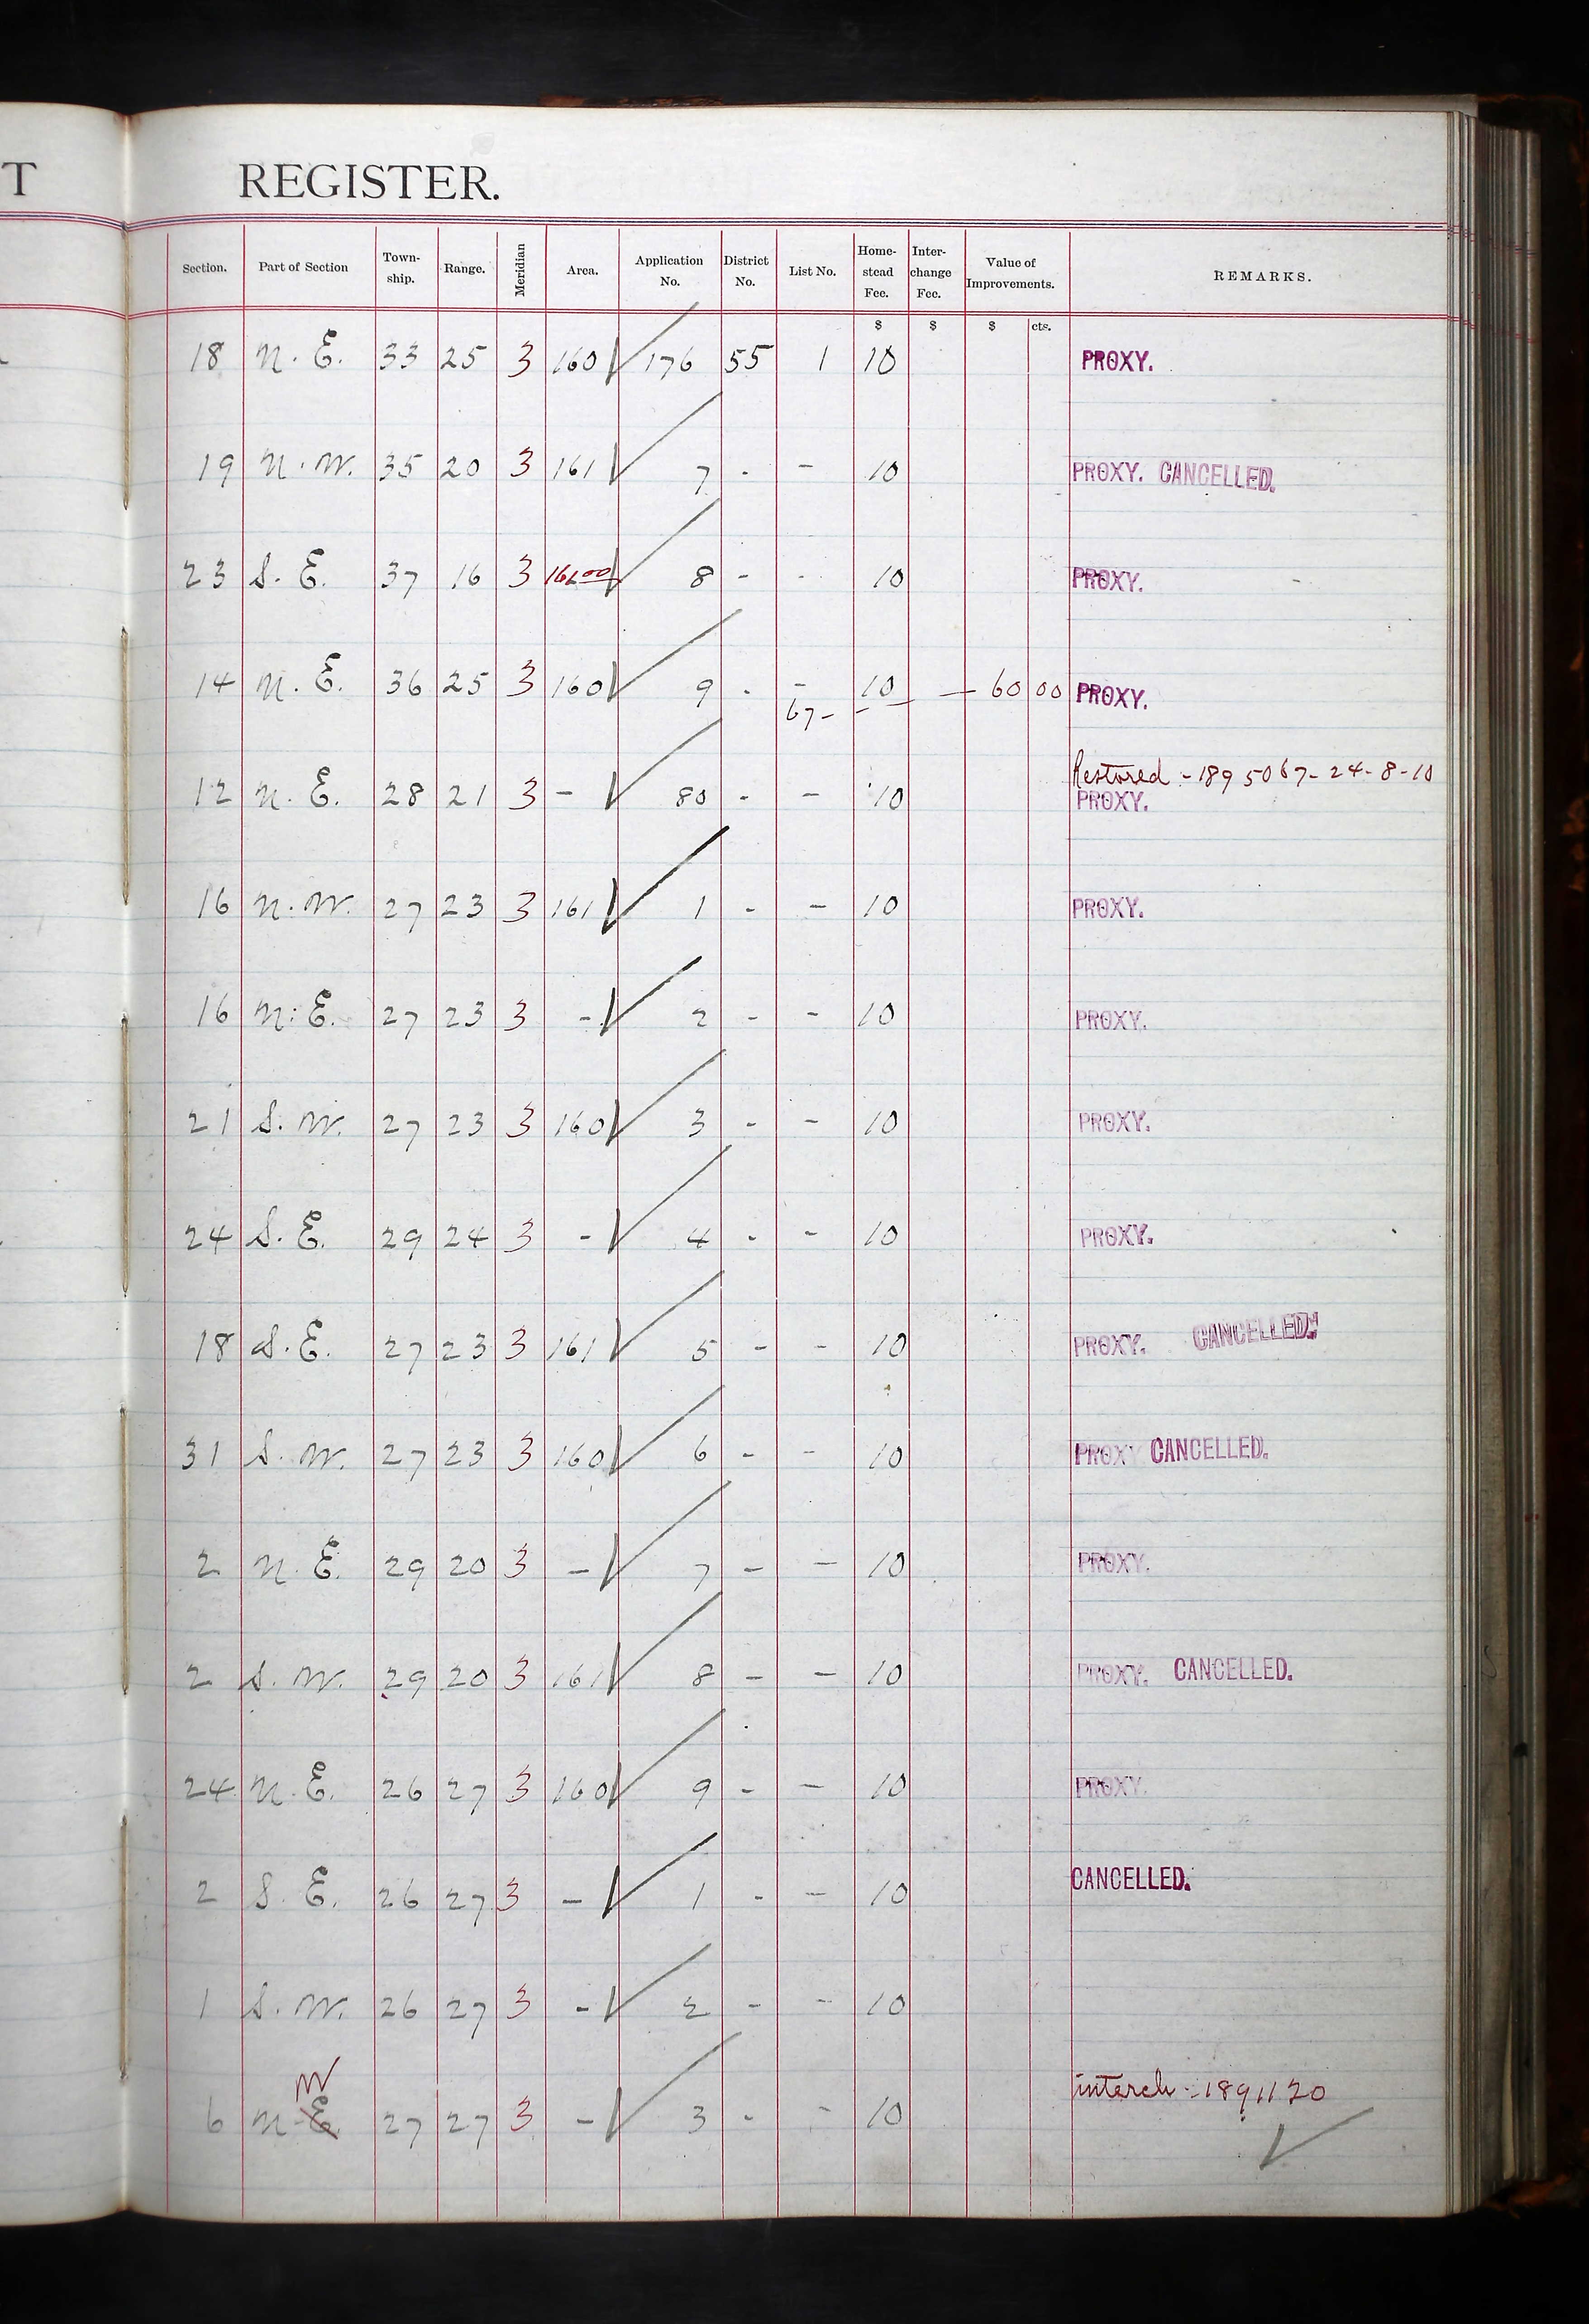 T REGISTER.
Section. Part of Section Town-ship. Range. Meridian Area. Application No. District No. List No. Home-stead Fee. Inter-change Fee. Value of Improvements. REMARKS.
$ $ $ cts.
18 N. E. 33 25 3 160 176 55 1 10 PROXY.
19 N. W. 35 20 3 161 7 - - 10 PROXY. CANCELLED.
23 S. E. 37 16 3 8 - - 10 PROXY.
14 N. E. 36 25 3 160 9 - - 10 — 60 00 PROXY.
67 -
Restored - 1895067 - 24-8-10
12 N. E. 28 21 3 - 80 - - 10 PROXY.
16 N. W. 27 23 3 161 1 - - 10 PROXY.
16 N. E. 27 23 3 - 2 - - 10 PROXY.
21 S. W. 27 23 3 160 3 - - 10 PROXY.
24 S. E. 29 24 3 - 4 - - 10 PROXY.
18 S. E. 27 23 3 161 5 - - 10 PROXY. CANCELLED.
31 S. W. 27 23 3 160 6 - - 10 PROXY CANCELLED.
2 N. E. 29 20 3 - 7 - - 10 PROXY.
2 S. W. 29 20 3 161 8 - - 10 PROXY. CANCELLED.
24 N. E. 26 27 3 160 9 - - 10 PROXY.
2 S. E. 26 27 3 - 1 - - 10 CANCELLED.
1 S. W. 26 27 3 - 2 - - 10
W interch - 1891120
6 N. E. 27 27 3 - 3 - - 10